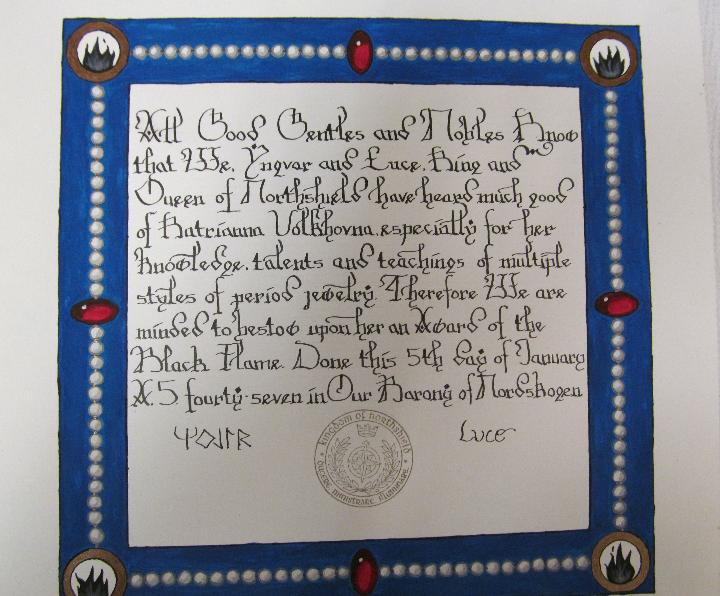 All Good Gentles and Nobles Know
that We, Yngvar and Luce, King and
Queen of Northshield have heard much good
of Katrianna Volkhovna, especially for her
knowledge, talents and teachings of multiple
styles of period jewelry. Therefore We are
minded to bestow upon her an Award of the
Black Flame. Done this 5th day of January
A.S fourty-seven in Our Barony of Nordskogen
Luce
kingdom of northshield
ducere ministrare illuminare